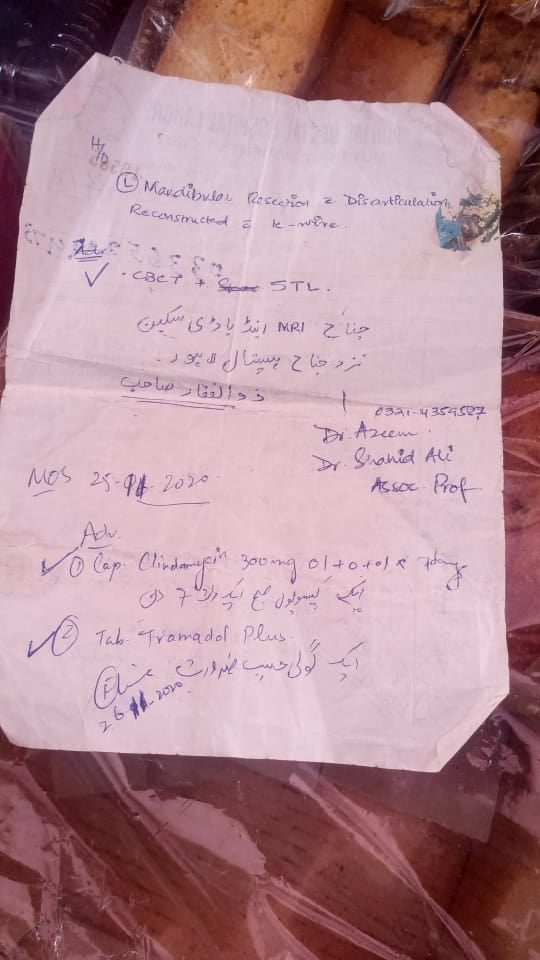 H/O
Ⓛ Mandibular Resection c̄ Disarticulation
Reconstructed c̄ k-wire.
Adv
✓ · CBCT + STL.
جناح MRI اینڈ باڈی سکین
نزد جناح ہسپتال لاہور۔
ذوالفقار صاحب
0321-4359587
Dr. Azeem.
Dr. Shahid Ali
Assoc. Prof
MOS 25-11-2020
Adv.
✓ ① Cap. Clindamycin 300mg 01+0+01 x 7days
ایک کیپسول صبح ایک رات 7 دن
✓ ② Tab. Tramadol Plus.
ایک گولی حسب ضرورت
26-11-2020